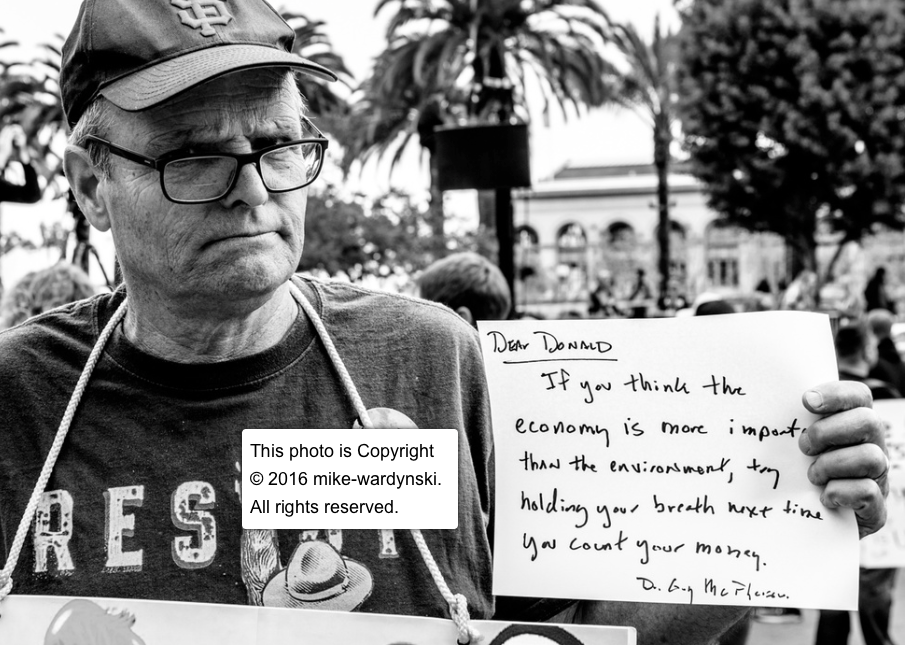 SF
DEAR DONALD
If you think the
economy is more importa
than the environment, try
holding your breath next time
you count your money.
Dr. Guy McPherson.
This photo is Copyright
© 2016 mike-wardynski.
All rights reserved.
RES T